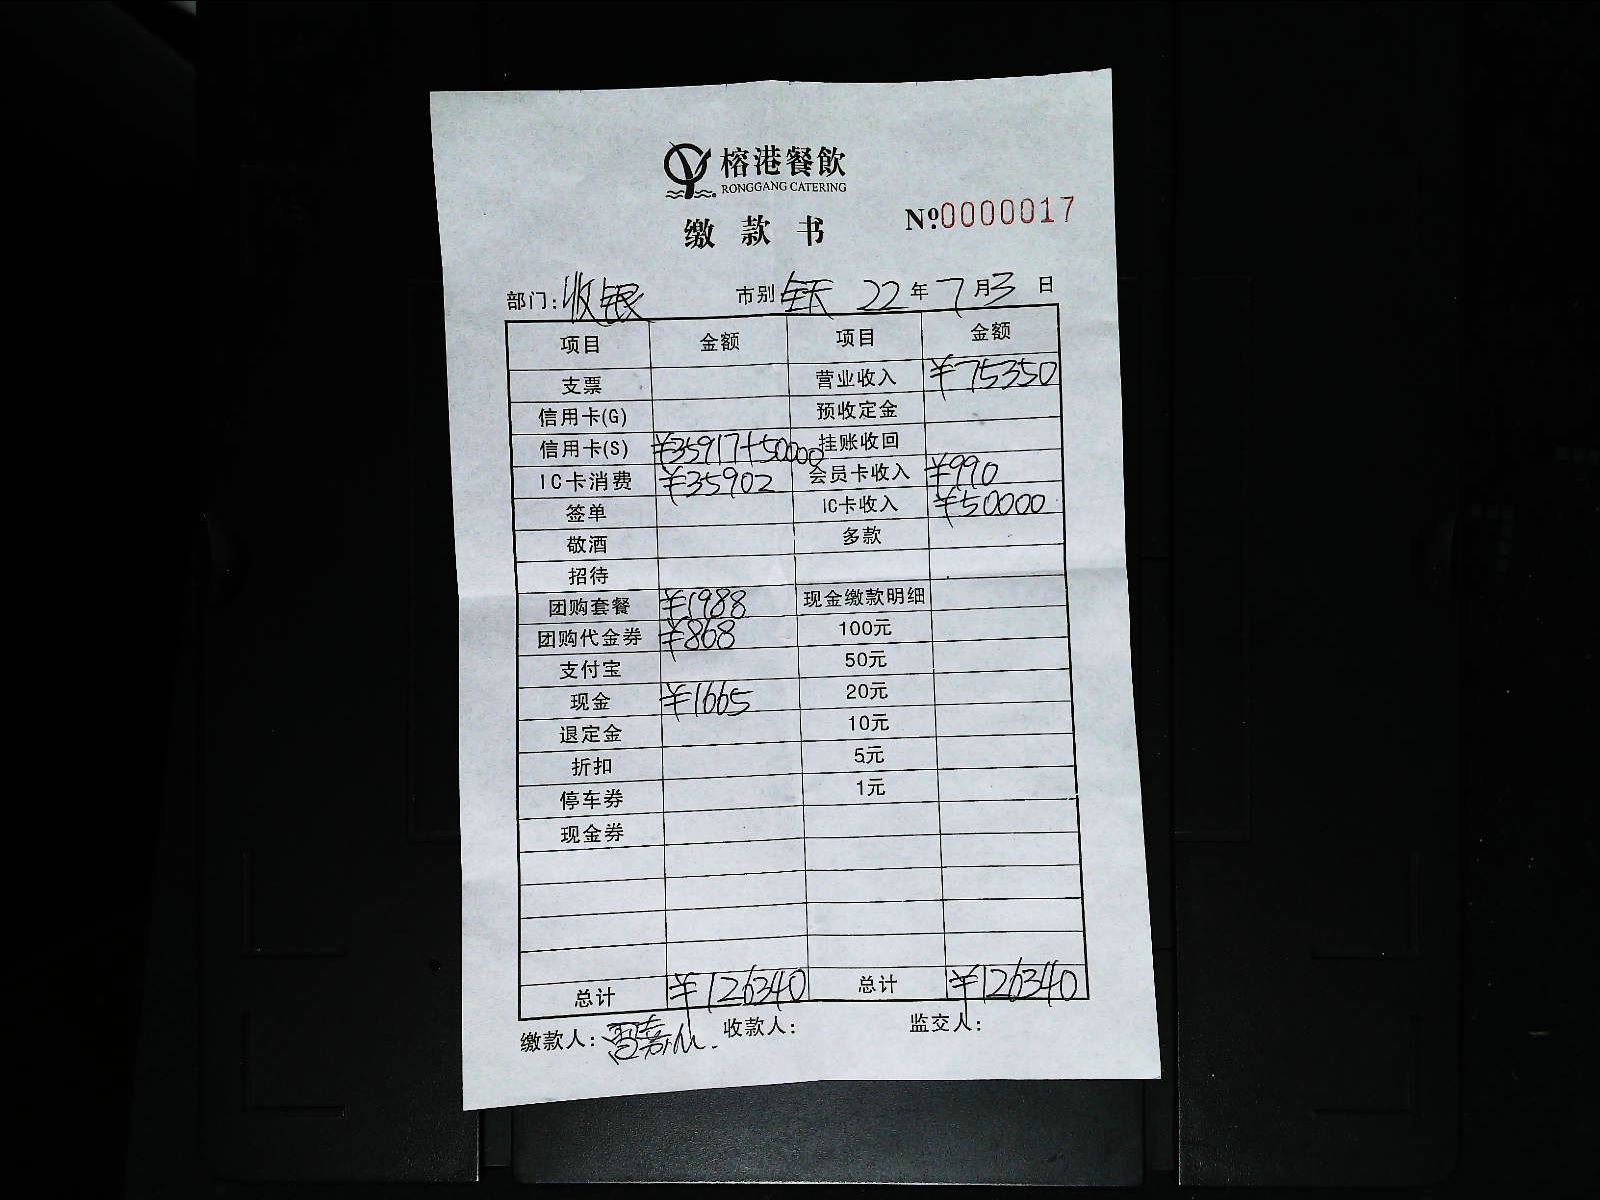 榕港餐飲
RONGGANG CATERING
缴款书 №0000017
部门:收银 市别 全天 22年7月3日
项目 金额 项目 金额
支票 营业收入 ¥75350
信用卡(G) 预收定金
信用卡(S) ¥35917+50000 挂账收回
IC卡消费 ¥35902 会员卡收入 ¥990
签单 IC卡收入 ¥50000
敬酒 多款
招待
团购套餐 ¥1988 现金缴款明细
团购代金券 ¥868 100元
支付宝 50元
现金 ¥1665 20元
退定金 10元
折扣 5元
停车券 1元
现金券
总计 ¥126340 总计 ¥126340
缴款人: 收款人: 监交人: